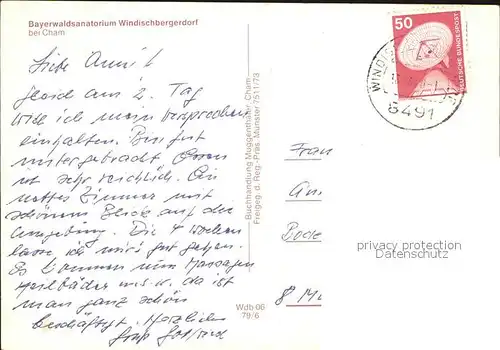 Bayerwaldsanatorium Windischbergerdorf
bei Cham
50
DEUTSCHE BUNDESPOST
WINDI
8491
Liebe Anni!
Gleich am 2. Tag
will ich mein Versprechen
einhalten. Bin gut
untergebracht. Essen
ist sehr reichlich. Ein
nettes Zimmer mit
schönem Blick auf die
Umgebung. Die 4 Wochen
lasse ich mir's gut gehen.
Es kommen nun Massagen
Heilbäder u.s.w. da ist
man ganz schön
beschäftigt. Herzlichen
Gruß
Buchhandlung Muggenthaler, Cham
Freigeg. d. Reg.-Präs. Münster 7511/73
Wdb 06
79/6
Frau
An
8 Mü
privacy protection
Datenschutz